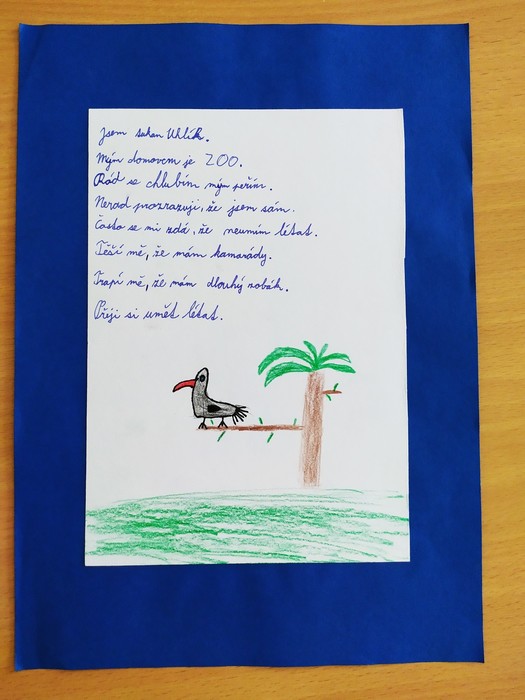 Jsem tukan Uhlík.
Mým domovem je ZOO.
Rád se chlubím mým peřím.
Nerad prozrazuji, že jsem sám.
Často se mi zdá, že neumím létat.
Těší mě, že mám kamarády.
Trapí mě, že mám dlouhý zobák.
Přeji si umět létat.